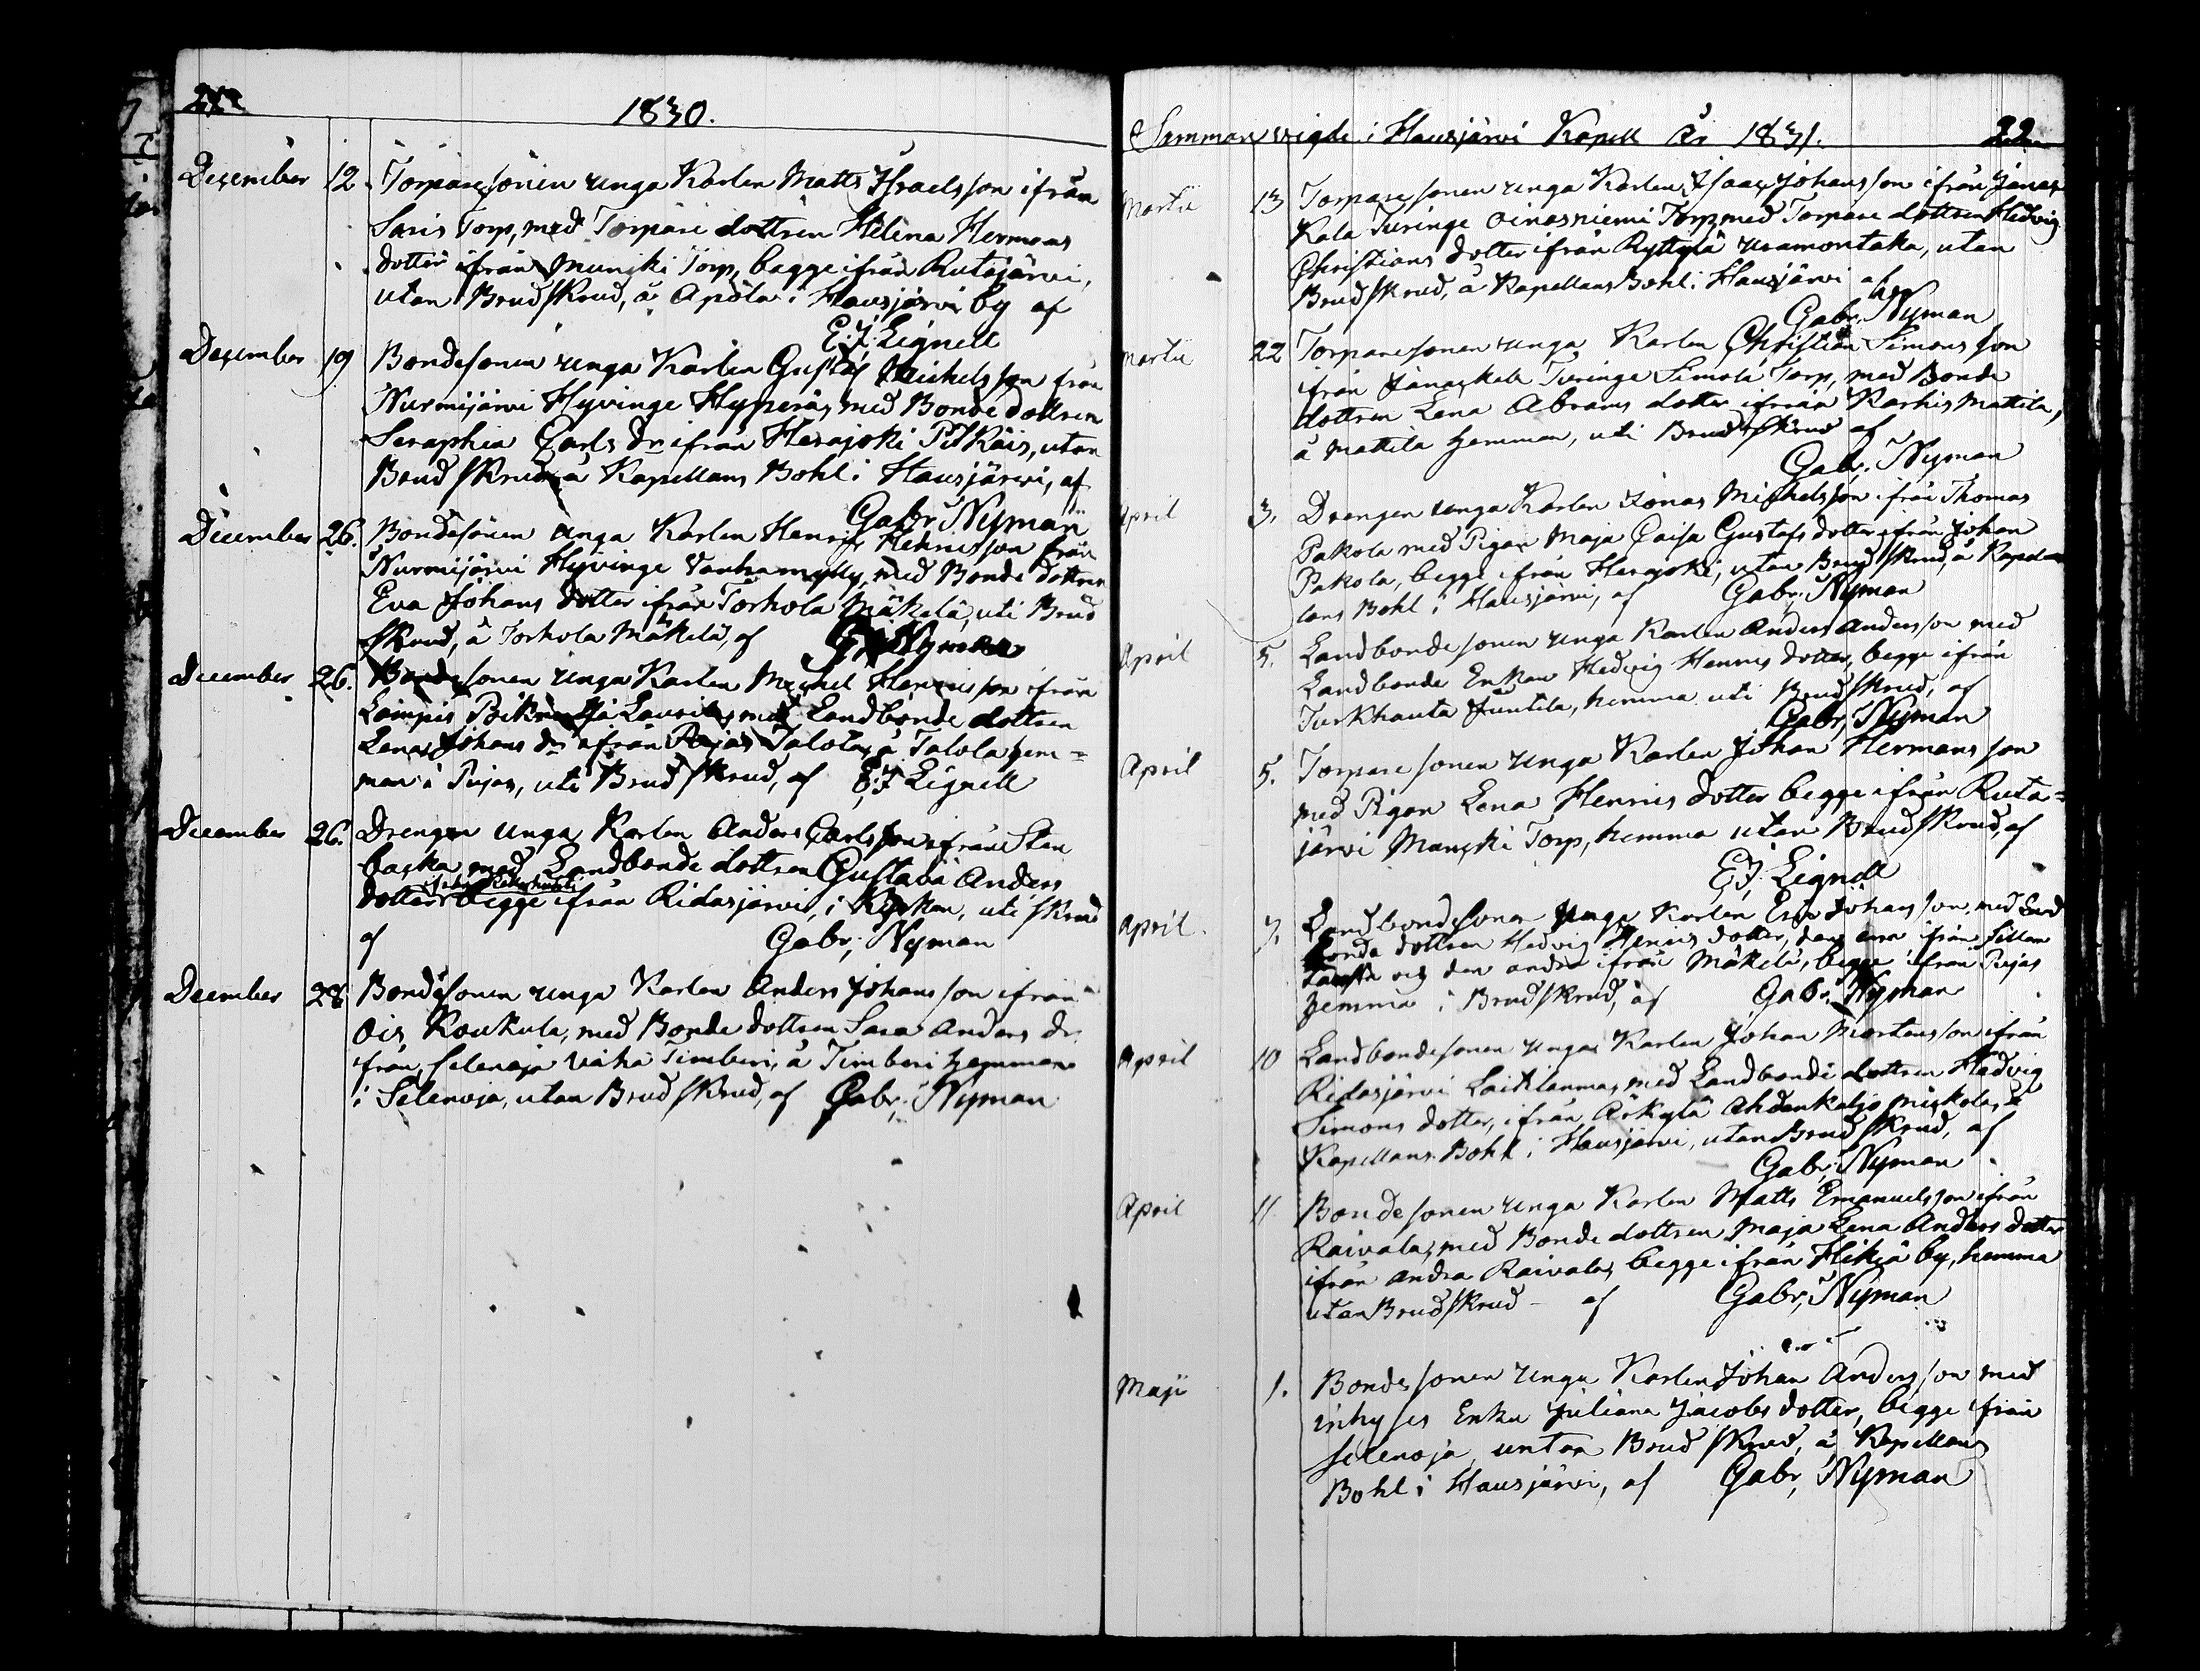 1830.
December 12. Torparesonen unga Karlen Matts Israelsson ifrån
Saris Torp, med Torpare dottren Helena Hermans
dotter ifrån Munski Torp, begge ifrån Rutajärvi,
utan Brudskrud, å Apóla i Hausjärvi by af
E.J. Lignell
December 19 Bondesonen unga Karlen Gustaf Michelsson från
Nurmijärvi Hyvinge Hyperäs, med Bonde dottren
Seraphia Carls dr ifrån Herajoki Pitkäis, utan
Brudskrud å Kapellans Bohl i Hausjärvi, af
Gabr. Nyman
December 26. Bondesonen unga Karlen Henric Henricsson från
Nurmijärvi Hyvinge Vanhamylly, med Bonde dottren
Eva Johans dotter ifrån Torhola Mäkelä, uti Brud
skrud, å Torhola Mäkelä, af G. Nyman
December 26. Bondesonen unga Karlen Michel Henricsson ifrån
Loimpis Laurila, med Landbonde dottren
Lena Johans dr ifrån Pujas Talola, å Talola hem=
man i Pujas, uti Brudskrud, af E.J. Lignell
December 26. Drengen unga Karlen Anders Carlsson ifrån Sten
backa med Landbonde dottren Gustava Anders
dotter begge ifrån Ridasjärvi, i Kyrkan, uti skrud
af Gabr. Nyman
December 28 Bondesonen unga Karlen Anders Johansson ifrån
Ois, Koukula, med Bonde dottren Sara Anders dr
från Selenoja Vähä Timberi, å Timberi hemman
i Selenoja, utan Brudskrud, af Gabr. Nyman
Sammanvigde i Hausjärvi Kapell År 1831. 22
Martii 13 Torparesonen unga Karlen Isaac Johansson ifrån Janac
kala Turinge Oinasniemi Torp, med Torpare dottren Hedvig
Christians dotter ifrån Ryttylä uramontaka, utan
Brudskrud, å Kapellans Bohl i Hausjärvi af
Gabr. Nyman
Martii 22 Torparesonen unga Karlen Christian Simonsson
ifrån Janackala Turinge Simola Torp, med Bonde
dottren Lena Abrams dotter ifrån Karhis Mattila,
å Mattila hemman, uti Brudskrud af
Gabr. Nyman
April 3. Drengen unga Karlen Jonas Michelsson ifrån Thomas
Pakola med Pigan Maja Caisa Gustafs dotter ifrån Johan
Pakola, begge ifrån Herajoki, utan Brudskrud, å Kapel
lans Bohl i Hausjärvi, af Gabr. Nyman
April 5. Landbondesonen unga Karlen Anders Andersson med
Landbonde Enkan Hedvig Henrics dotter, begge ifrån
Turkhauta Juntila, hemma uti Brudskrud, af
Gabr. Nyman
April 5. Torparesonen unga Karlen Johan Hermansson
med Pigan Lena Henrics dotter begge ifrån Ruta=
järvi Munski Torp, hemma utan Brudskrud, af
E.J. Lignell
April 7. Landbondesonen unga Karlen Eric Johansson, med Land
bonde dottren Hedvig Henrics dotter, den ena från
och den andra ifrån Mäkelä, begge ifrån Pujas
hemma i Brudskrud, af Gabr. Nyman
April 10 Landbondesonen unga Karlen Johan Mårtensson ifrån
Ridasjärvi Laitilanma, med Landbonde dottren Hedvig
Simons dotter, ifrån Ärkylä Ahdenkaljo å
Kapellans Bohl i Hausjärvi, utan Brudskrud, af
Gabr. Nyman
April 11 Bondesonen unga Karlen Matts Emanuelsson ifrån
Raivala, med Bonde dottren Maja Lena Anders dotter
ifrån andra Raivala, begge ifrån Hikiä by, hemma
utan Brudskrud - af Gabr. Nyman
Maji 1. Bondesonen unga Karlen Johan Andersson med
inhyses Enka Juliana Jacobs dotter, begge ifrån
Selenoja, untan Brudskrud, å Kapellans
Bohl i Hausjärvi, af Gabr. Nyman